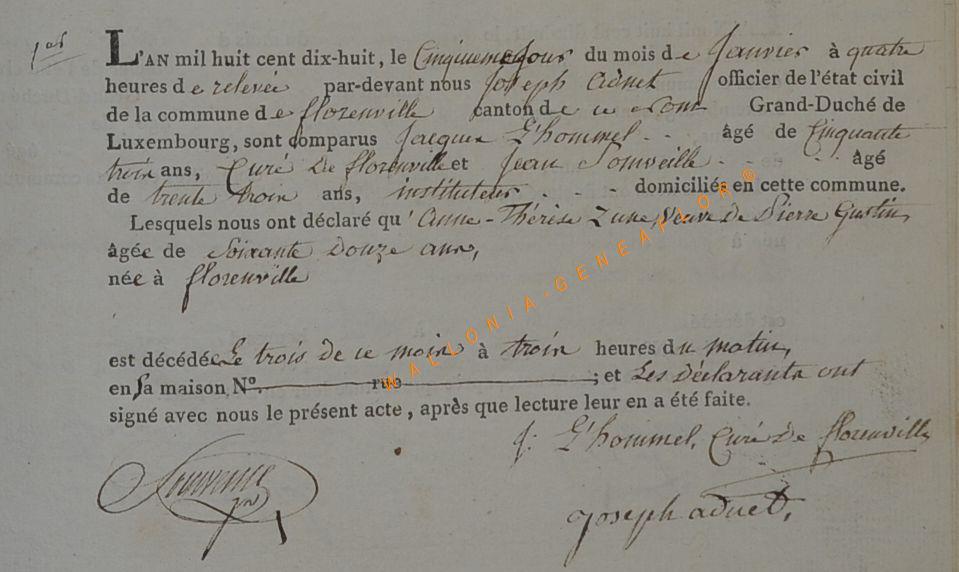 1er
L'AN mil huit cent dix-huit, le Cinquieme Jour du mois de Janvier à quatre
heures de relevée par-devant nous Joseph adnet officier de l'état civil
de la commune de florenville canton de ce nom Grand-Duché de
Luxembourg, sont comparus Jacques L'hommel âgé de Cinquante
trois ans, Curé De florenville et Jean âgé
de trente trois ans, instituteur domiciliés en cette commune.
Lesquels nous ont déclaré qu'Anne-Thérèse Zune, Veuve de Pierre Gustin,
âgée de Soixante Douze ans,
née à florenville
est décédée Le trois de ce mois à trois heures du matin,
en Sa maison N°. rue ; et Les Déclarants ont
signé avec nous le présent acte, après que lecture leur en a été faite.
J: L'hommel, Curé De florenville
Joseph adnet,
WALLONIA-GENEAPLOR®